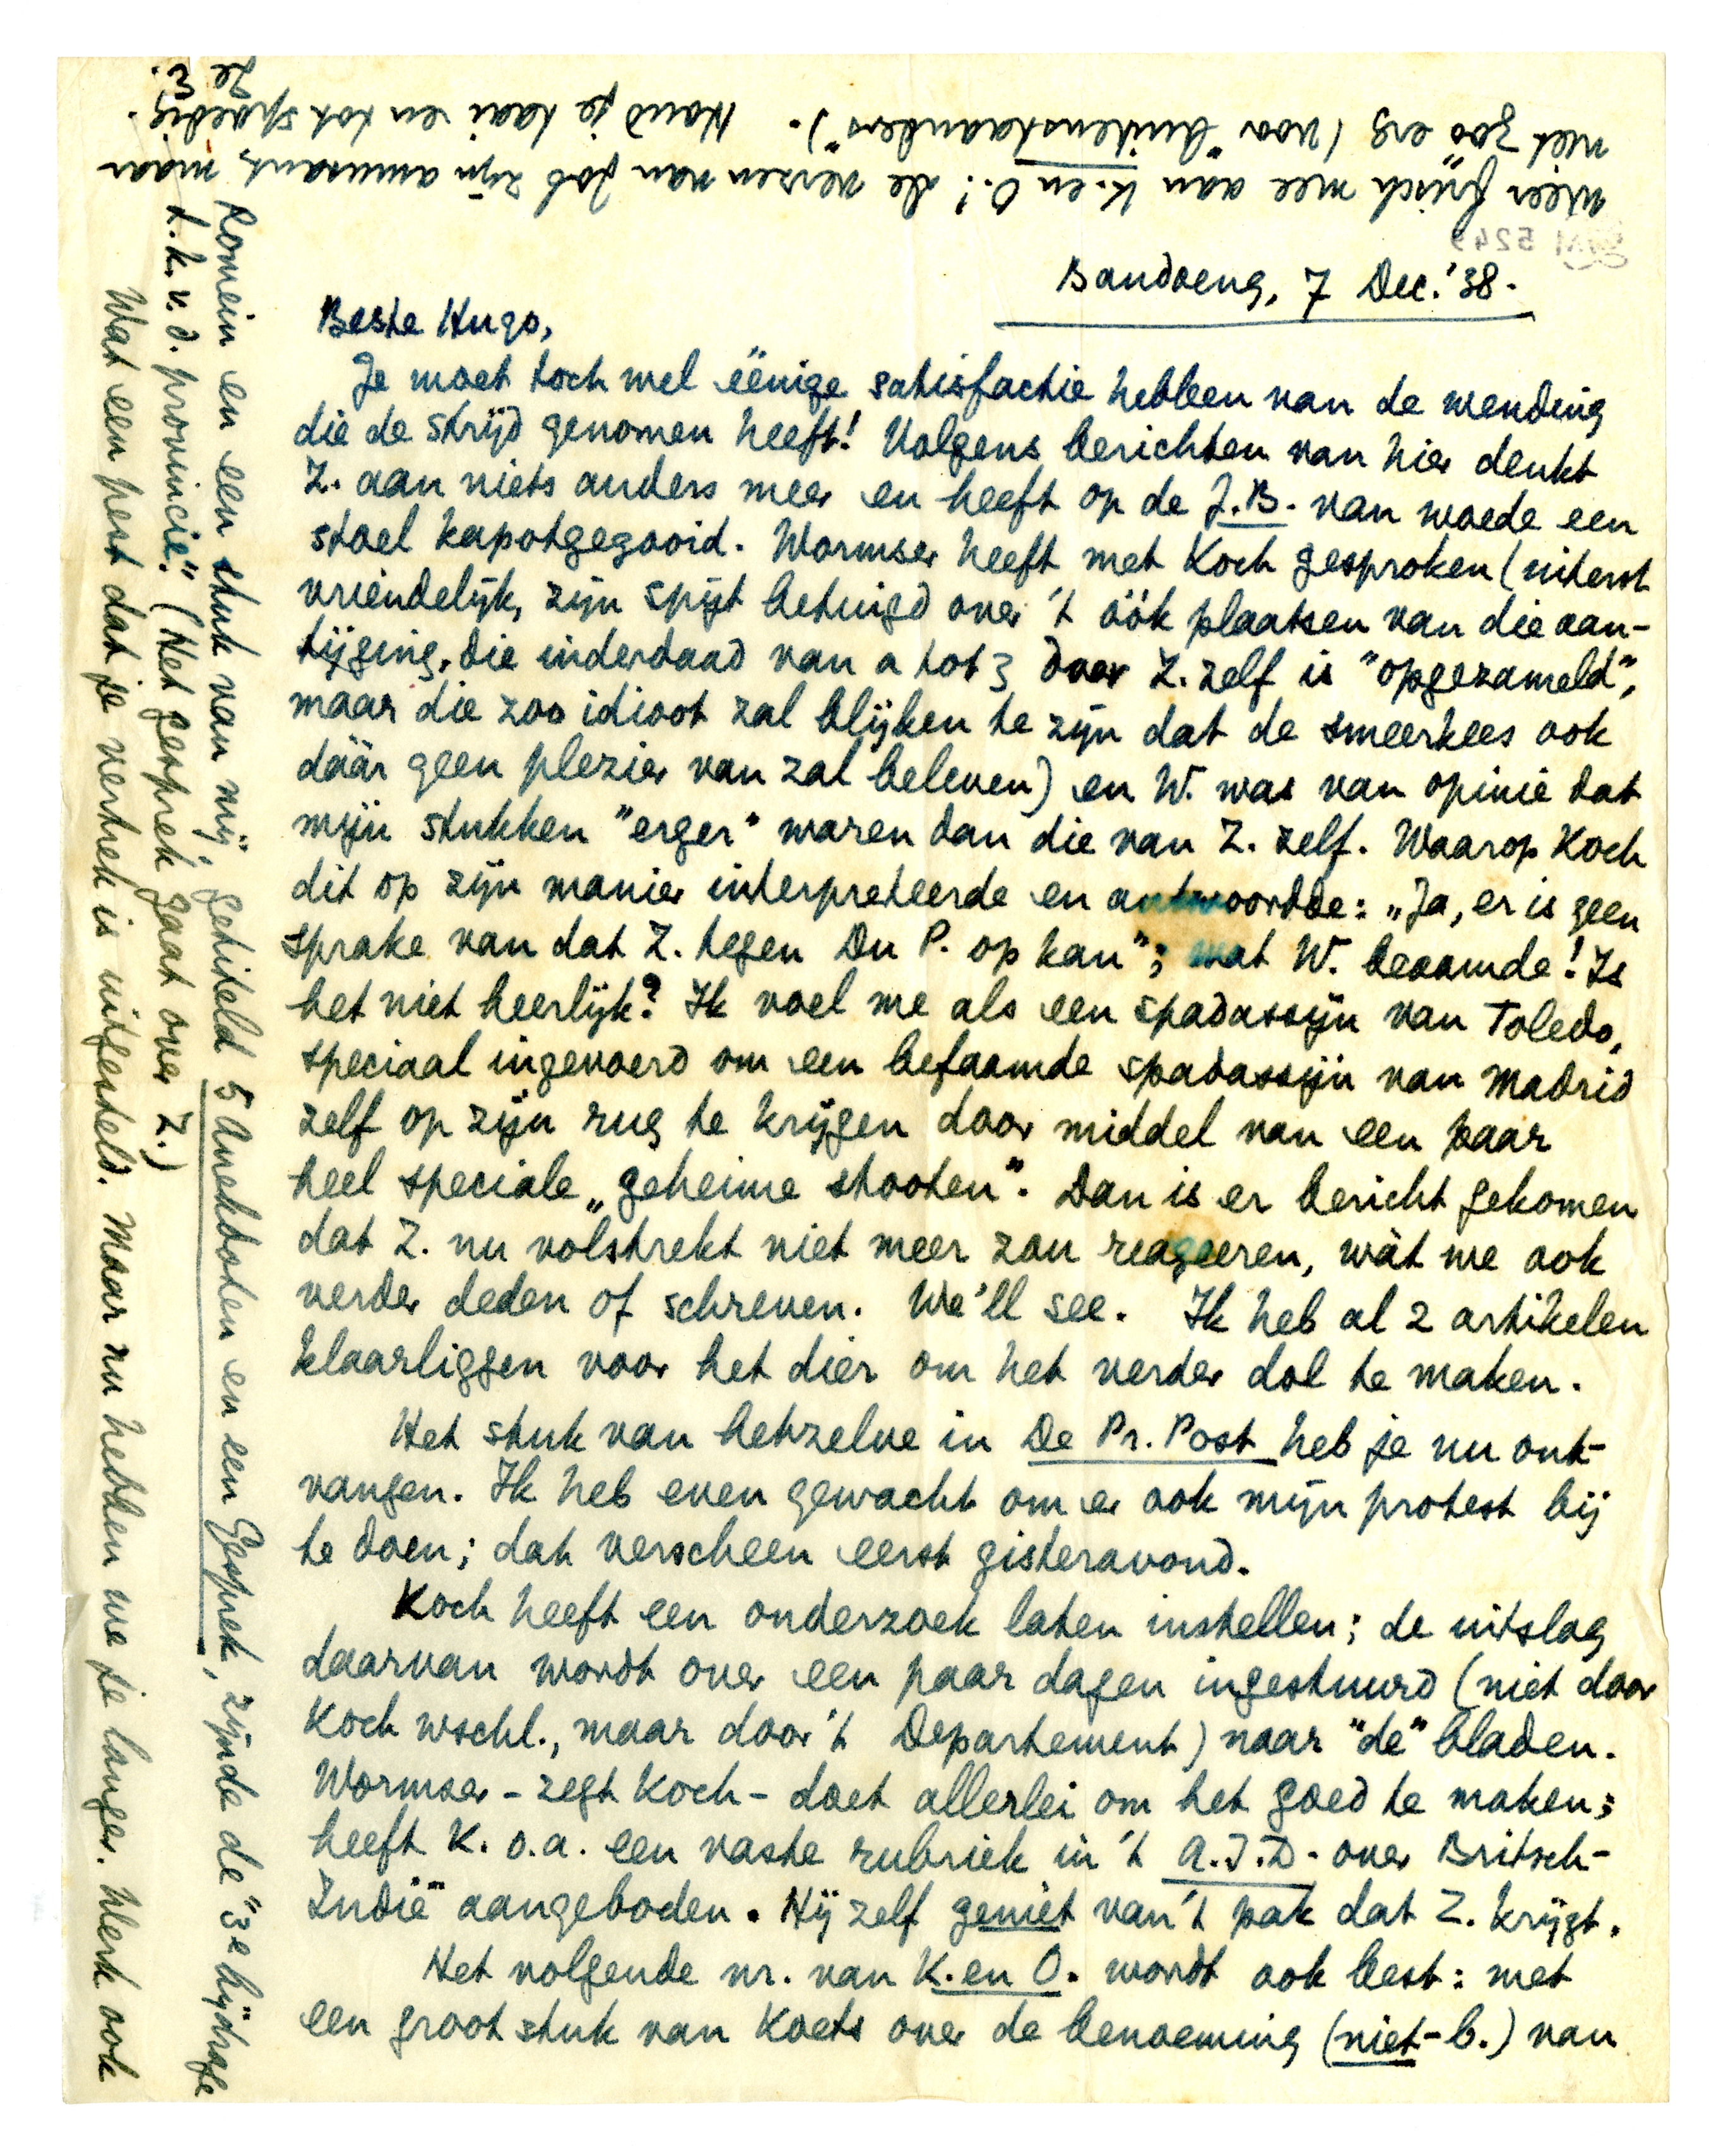 Bandoeng, 7 Dec. '38.
Beste Hugo,
Je moet toch wel ëënige satisfactie hebben van de wending
die de strijd genomen heeft! Volgens berichten van hier denkt
Z. aan niets anders meer en heeft op de J.B. van woede een
stoel kapotgegooid. Wormser heeft met Koch gesproken (uiterst
vriendelijk, zijn spijt betuigd over 't óók plaatsen van die aan-
tijging, die inderdaad van a tot z door Z. zelf is "opgezameld",
maar die zoo idioot zal blijken te zijn dat de smeerkees ook
dáár geen plezier van zal beleven) en W. was van opinie dat
mijn stukken "erger" waren dan die van Z. zelf. Waarop Koch
dit op zijn manier interpreteerde en antwoordde: „Ja, er is geen
sprake van dat Z. tegen Du P. op kan"; wat W. beaamde! Is
het niet heerlijk? Ik voel me als een spadassijn van Toledo,
speciaal ingevoerd om een befaamde spadassijn van Madrid
zelf op zijn rug te krijgen door middel van een paar
heel speciale „geheime stooten". Dan is er bericht gekomen
dat Z. nu volstrekt niet meer zou reageeren, wàt we ook
verder deden of schreven. We'll see. Ik heb al 2 artikelen
klaarliggen voor het dier om het verder dol te maken.
Het stuk van hetzelve in De Pr. Post heb je nu ont-
vangen. Ik heb even gewacht om er ook mijn protest bij
te doen; dat verscheen eerst gisteravond.
Koch heeft een onderzoek laten instellen; de uitslag
daarvan wordt over een paar dagen ingestuurd (niet door
Koch wschl., maar door 't Departement) naar "de" bladen.
Wormser - zegt Koch - doet allerlei om het goed te maken;
heeft K. o.a. een vaste rubriek in 't A.I.D. over Britsch-
Indië aangeboden. Hij zelf geniet van 't pak dat Z. krijgt.
Het volgende nr. van K. en O. wordt ook best: met
een groot stuk van Koets over de benoeming (niet-b.) van
Romein en een stuk van mij, getiteld 5 Anekdoten en een Gesprek, zijnde de "3e bijdrage
t.k.v.d. provincie." (Het gesprek gaat over Z.)
Wat een pest dat je vertrek is uitgesteld. Maar nu hebben we je langer. Werk ook
weer frisch mee aan K. en O.! De verzen van Job zijn amusant, maar
niet zoo erg (voor "buitenstaanders"). Houd je taai en tot spoedig.
Je
E.
GM 5249